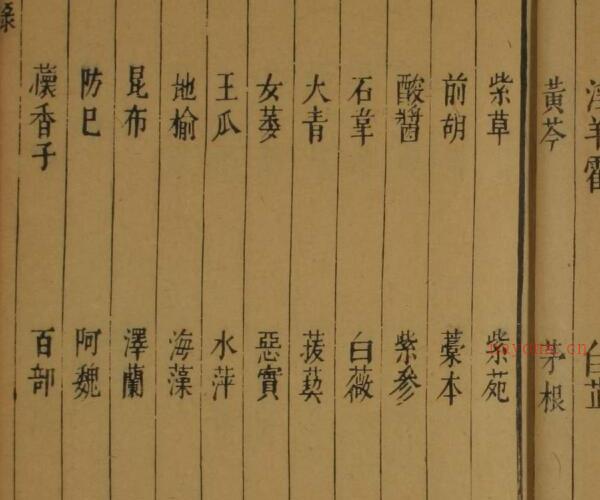 淫羊藿 白芷
黃芩 茅根
紫草 紫苑
前胡 藁本
酸醬 紫參
石韋 白薇
大青 菝葜
女萎 惡實
王瓜 水萍
地榆 海藻
昆布 澤蘭
防巳 阿魏
蘹香子 百部
錄